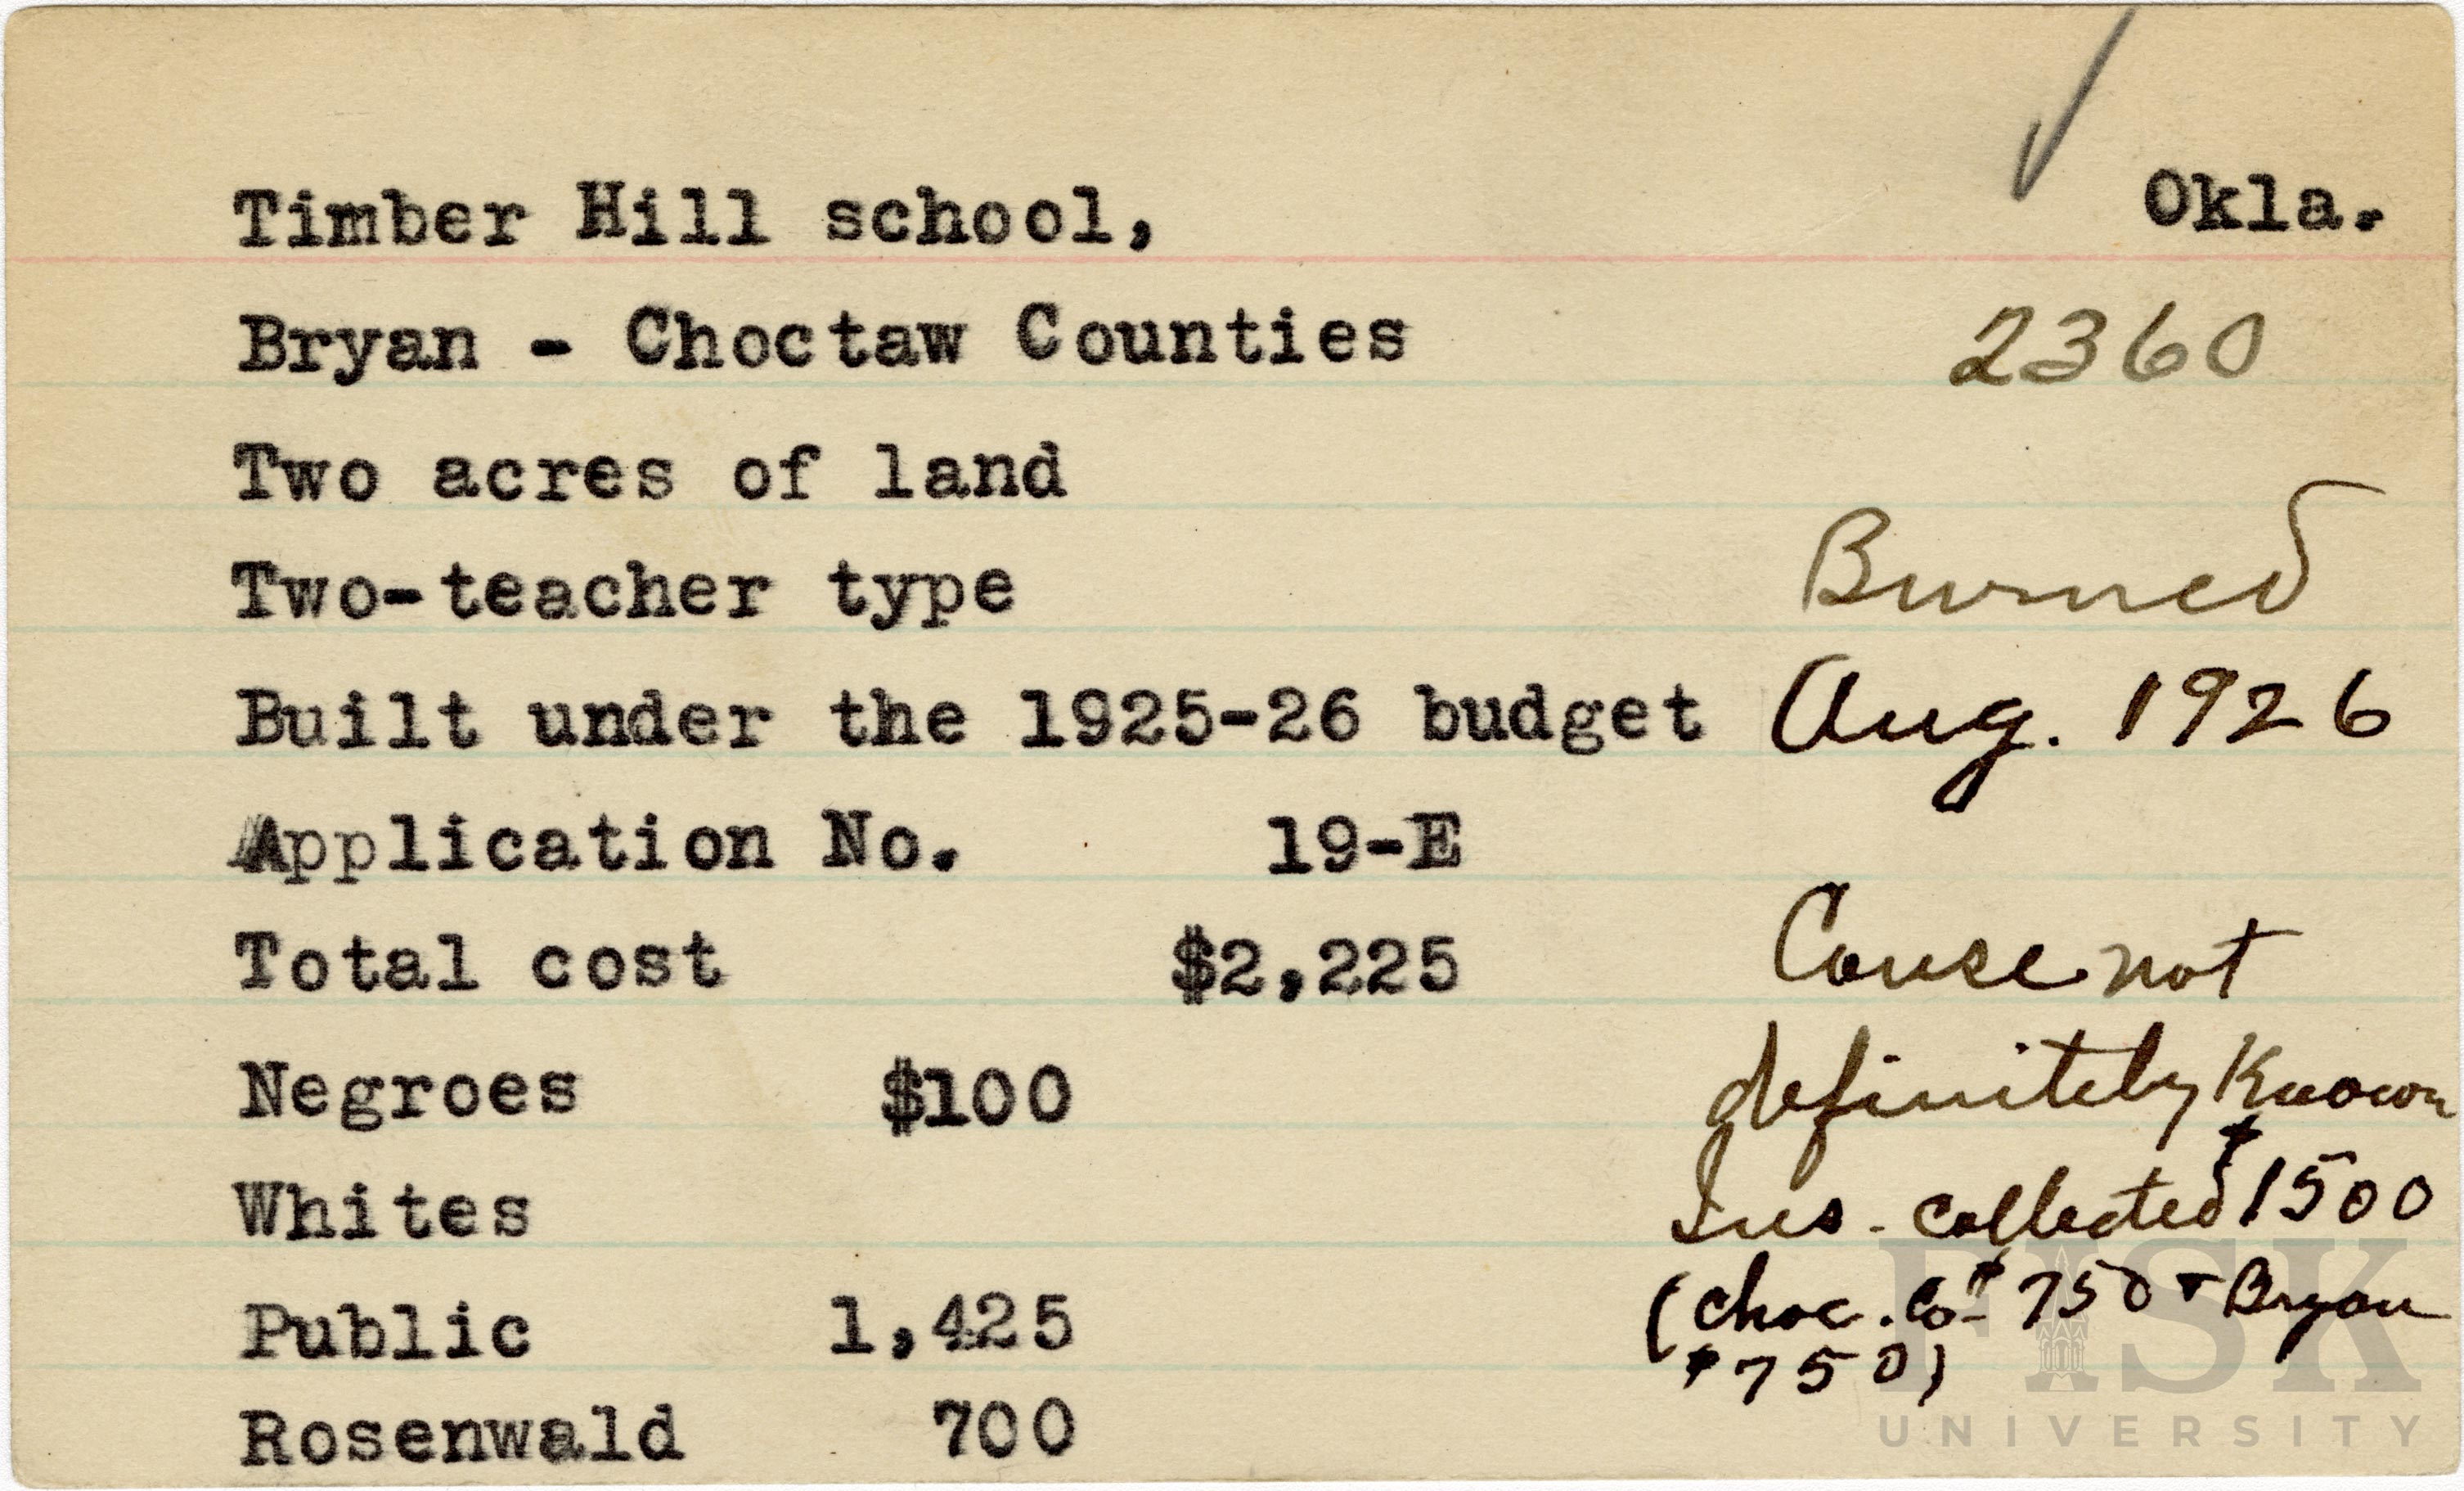 Okla.
Timber Hill school,
Bryan - Choctaw Counties
2360
Two acres of land
Two-teacher type
Burned
Built under the 1925-26 budget
Aug. 1926
Application No. 19-E
Total cost $2,225
Cause not
Negroes $100
definitely Known
Whites
Ins. collected $1500
Public 1,425
(Choc. Co. $750 + Bryan
$750)
Rosenwald 700
FISK
UNIVERSITY